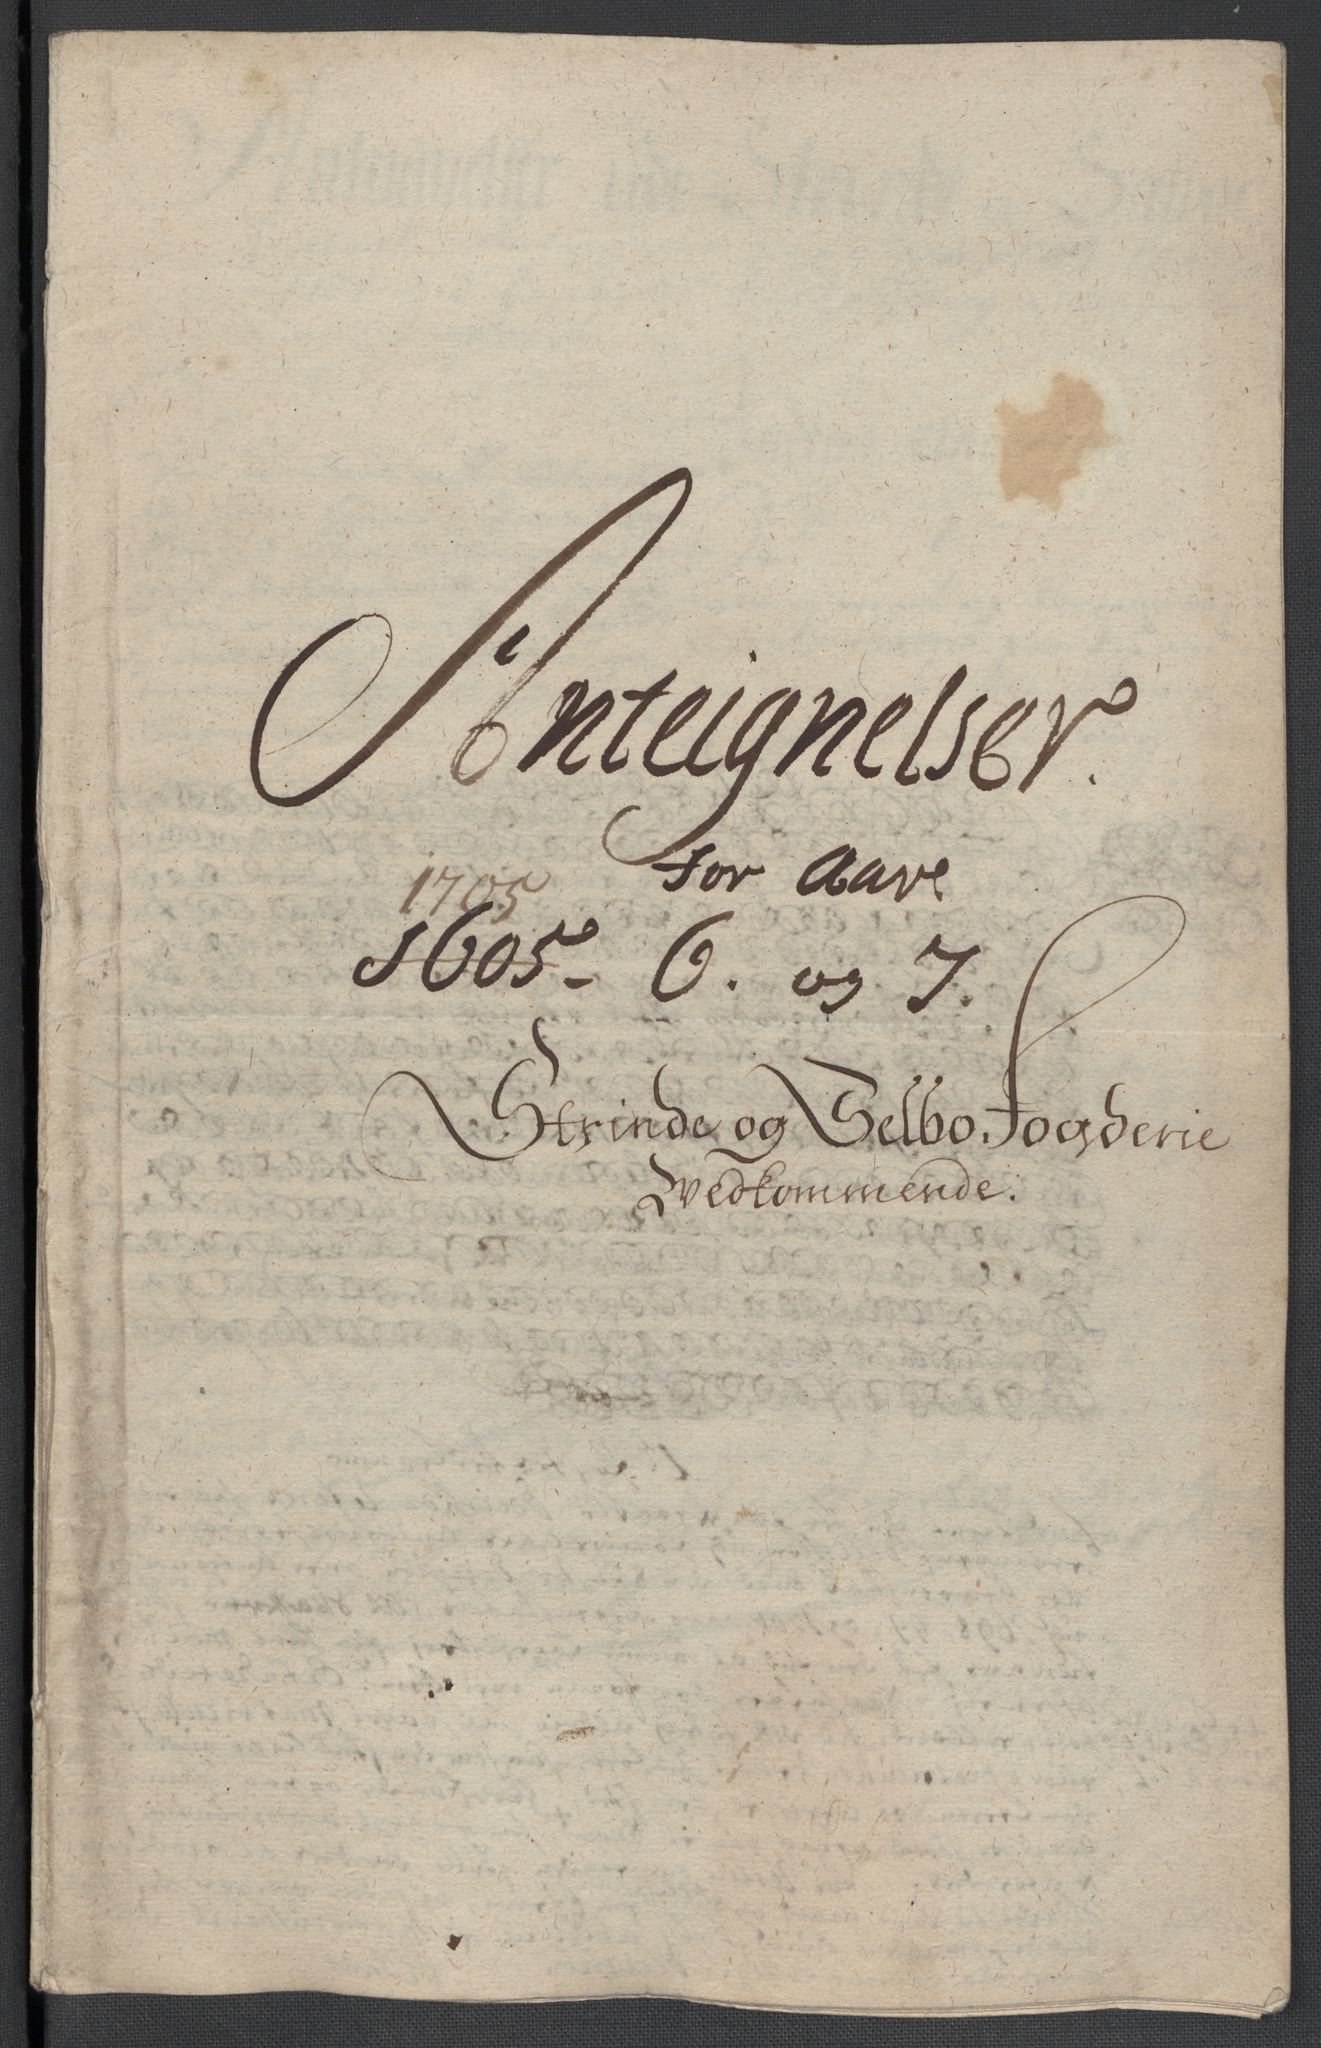 Anteignelser.
for Aare
1705
1605- 6. og 7.
Strinde og Selbo Fogderie
Vedkommende.